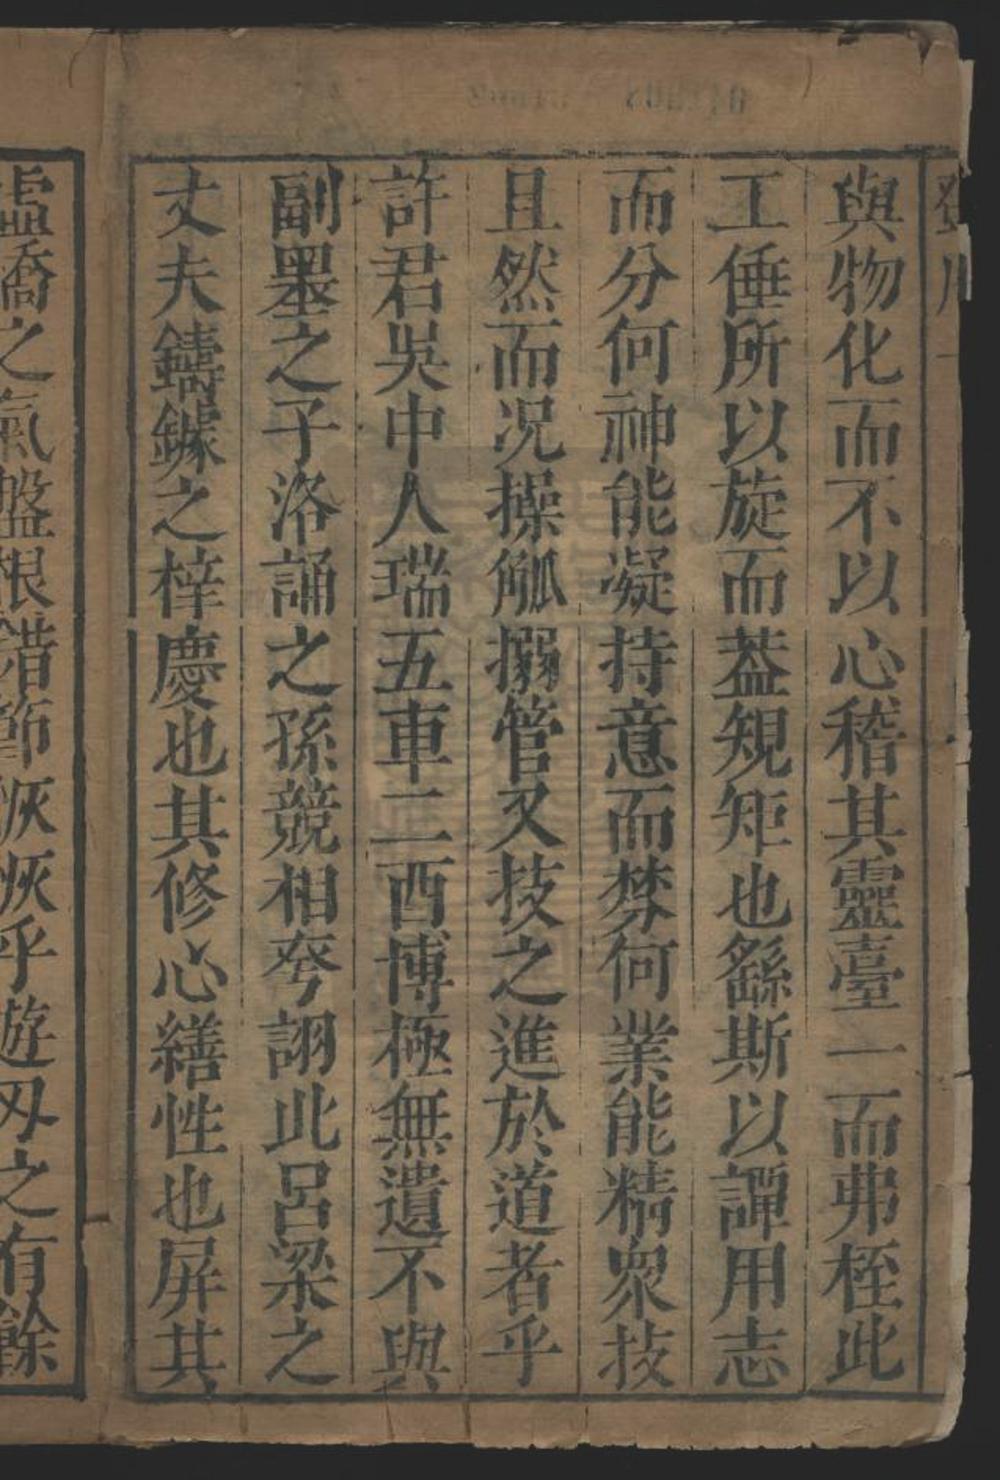 與物化而不以心稽其靈臺一而弗桎此
工倕所以旋而葢規矩也繇斯以譚用志
而分何神能凝持意而棼何業能精衆技
且然而况操觚搦管又技之進於道者乎
許君吳中人瑞五車二酉博極無遺不與
副墨之子洛誦之孫競相夸詡此呂梁之
丈夫鑄鐻之梓慶也其修心繕性也屏其
虛憍之氣盤根錯節恢恢乎遊刃之有餘